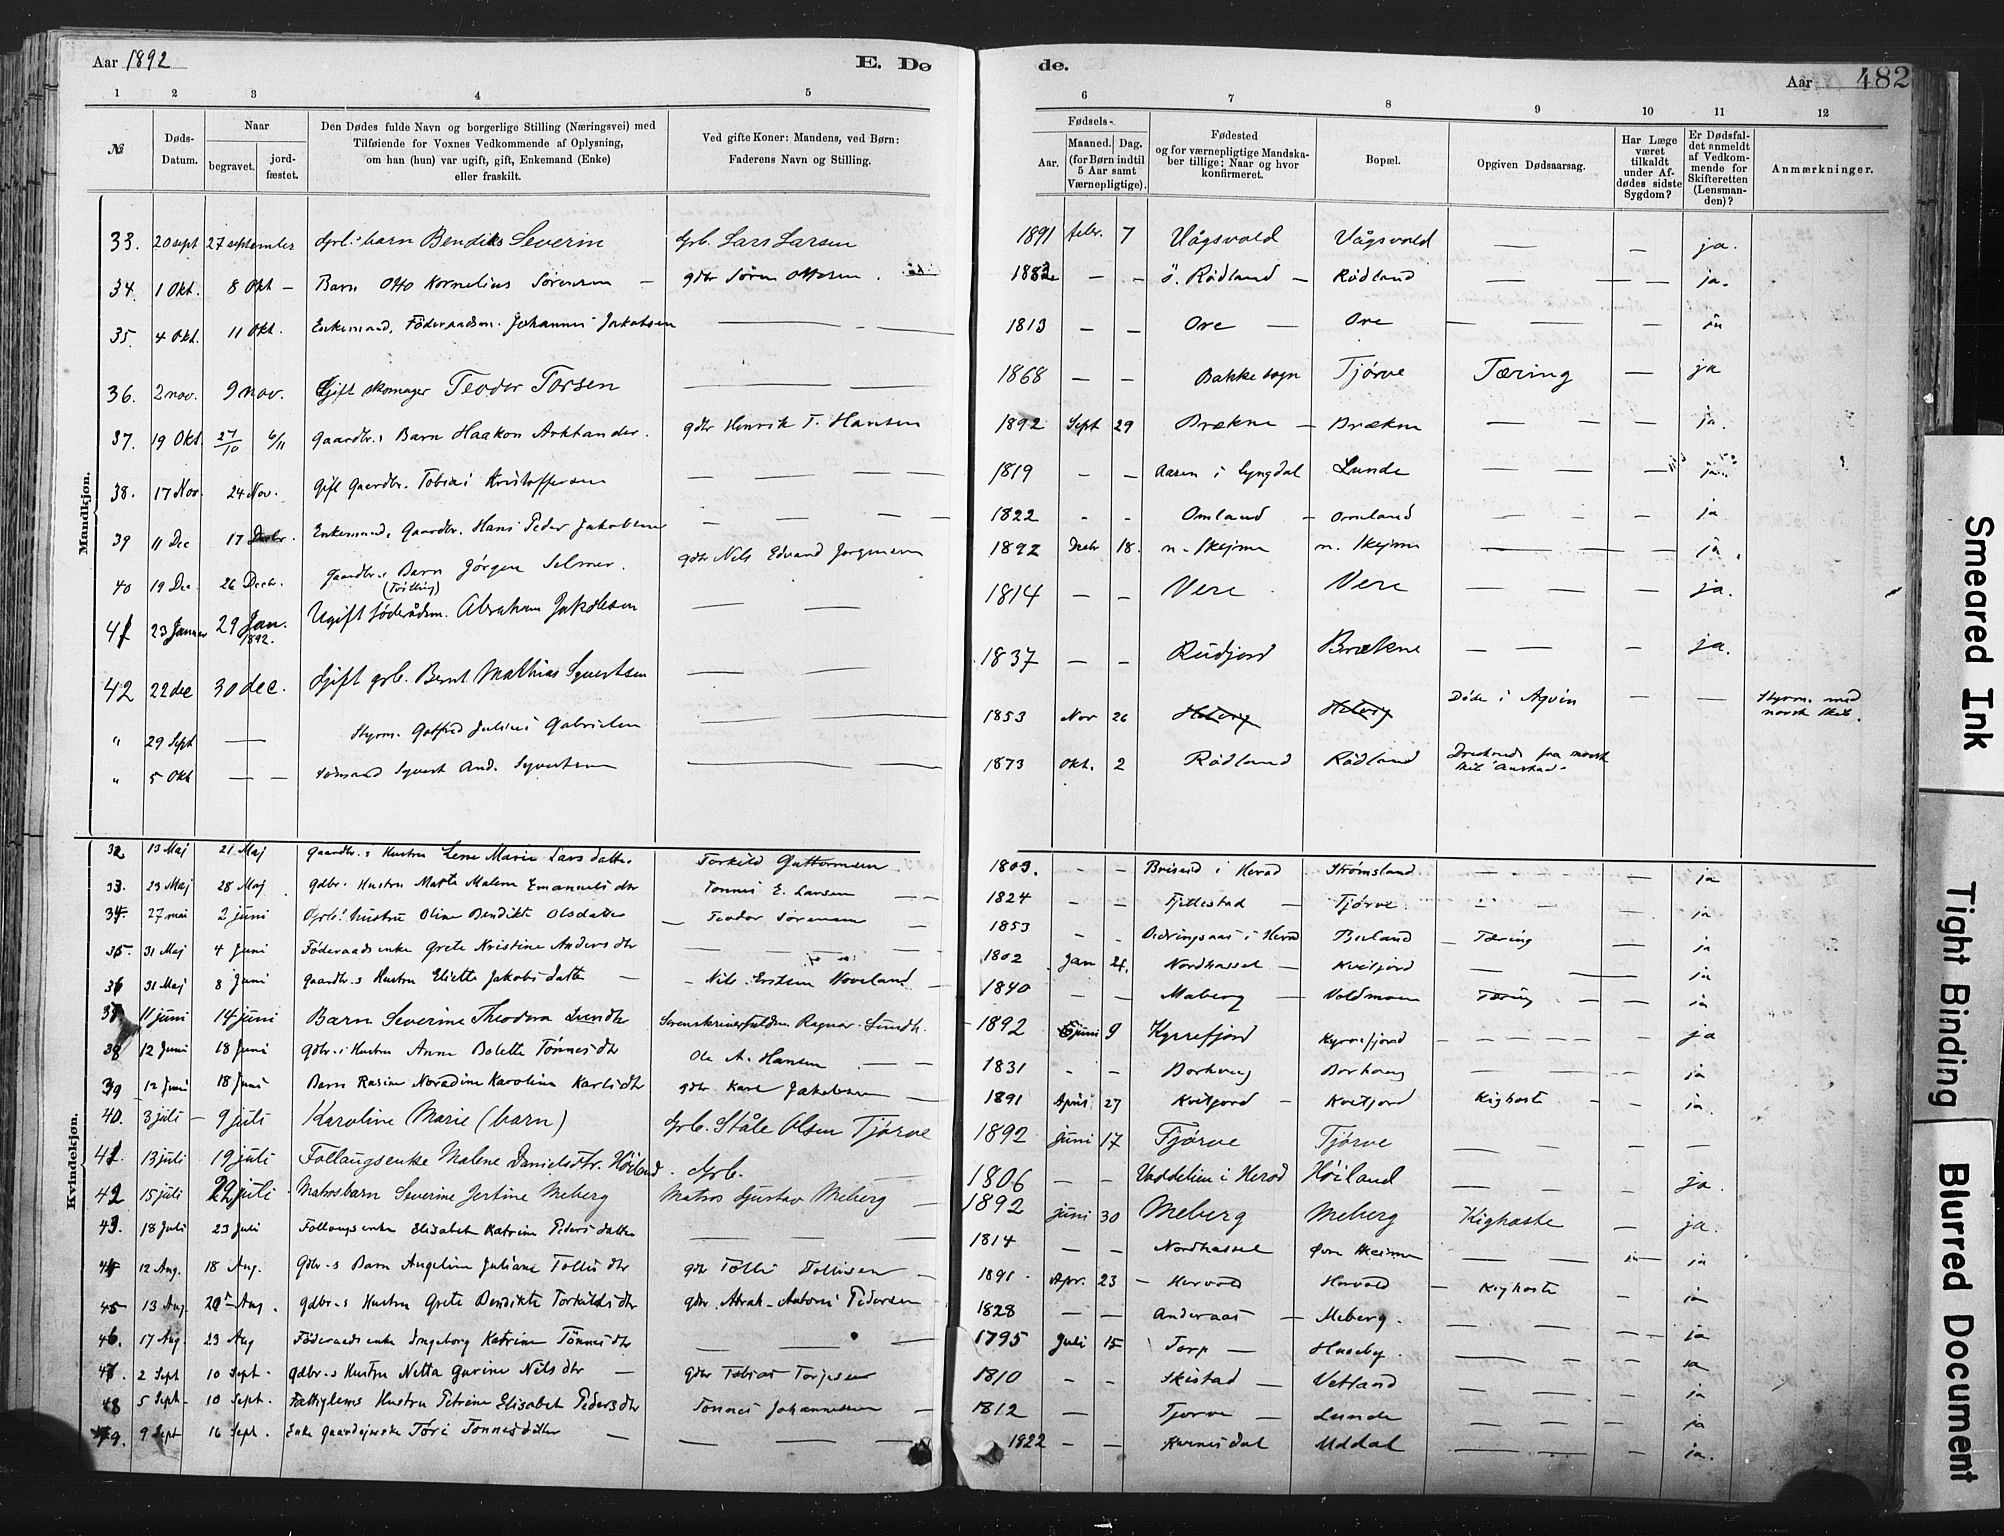 Aar 1892
E. Dø
de.
Aar 482
1 2 3 4 5 6 7 8 9 10 11 12
№
Døds-Datum.
Naar
begravet.
jord-fæstet.
Den Dødes fulde Navn og borgerlige Stilling (Næringsvei) med
Tilføiende for Voxnes Vedkommende af Oplysning,
om han (hun) var ugift, gift, Enkemand (Enke)
eller fraskilt.
Ved gifte Koner: Mandens, ved Børn:
Faderens Navn og Stilling.
Fødsels-
Aar.
Maaned. Dag.
(for Børn indtil
5 Aar samt
Værnepligtige).
Fødested
og for værnepligtige Mandska-
ber tillige: Naar og hvor
konfirmeret.
Bopæl.
Opgiven Dødsaarsag.
Har Læge
været
tilkaldt
under Af-
dødes sidste
Sygdom?
Er Dødsfal-
det anmeldt
af Vedkom-
mende for
Skifteretten
(Lensman-
den)?
Anmærkninger.
Mandkjøn.
33. 20 sept 27 september Grb.s barn Bendiks Severin Grb. Lars Larsen 1891 febr. 7 Vågsvold Vågsvold — — ja.
34. 1 Okt. 8 Okt — Barn Otto Kornelius Sørensen — gdbr Søren Ottosen. — — ö. Rødland — Rødland — — ja.
35. 4 Okt. 11 Okt. Enkemand, Föderaadsm. Johannes Jakobsen — — 1813 — — Ore — Ore — — ja
36. 2 nov. 9 nov. Gift skomager Teodor Torsen — — 1868 — — Bakke sogn Tjørve Tæring — ja
37. 19 Okt. 27/10 6/11 Gaardbr.s Barn Haakon Arktander. gdbr Henrik T. Hansen 1892 Sept 29 Brækne — Brækne — — ja.
38. 17 Nov. 24 Nov. Gift Gaardbr. Tobias Kristoffersen — — 1819 — — Aasen i Lyngdal Lunde — — ja.
39 11 Dec 17 Decbr. Enkemand, Gaardbr. Hans Peder Jakobsen — — 1822 - - Omland — Omland — — ja
40 19 Dec 26 Decb. Gaardbr.s Barn Jörgen Selmer. (Tvilling) gdbr Nils Edvard Jørgensen 1892 Decbr 18. n. Skejme n. Skejme — — ja.
41 23 Januar 29 Jan. 1892. Ugift föderådsm. Abraham Jakobsen — — 1814 — — Vere Vere — — ja.
42 22 dec 30 dec. Gift grb. Bernt Mathias Syvertsen — — 1837 — — Rudjord Brækne — — ja.
" 29 Sept — Styrm. Gotfred Julius Gabrielsen — 1853 Nov 26 Døde i — — Styrm. med norsk Skib.
" 5 Okt — — Syvert And. Syvertsen — 1873 Okt. 2 Rødland Rødland fra norsk Skib
Kvindekjøn.
32 13 Maj 21 Maj Gaardbr.s Hustru Lene Marie Larsdatter Torkild Guttormsen 1803. - - i Herad Strømsland — — ja
33. 23 Maj 28 Maj Gdbr. Hustru Marte Malene Emanuelsdtr Tønnes E. Larsen 1824 - - Fjellestad — Tjørve. - — ja
34. 27 mai 2 juni Grb.s hustru Oline Bendikte Olsdatter — Teodor Sørensen — 1853 - - i Herad Birland — Tæring — ja
35. 31 Maj 4 Juni Föderaadsenke Grete Kristine Andersdtr — — 1802 Jan 21. Nordhassel — Kvitjord — — ja
36 31 Maj 8 Juni Gaardbr.s Hustru Eliette Jakobsdatter — Nils Hoveland — 1840 — — Maberg — Voldmoen Tæring — ja
37 11 juni 14 juni Barn Severine Theodora Lundh Sorenskriverfuldm. Ragnar Lundh. 1892 juni 9 Kyrrefjord Kyrrefjord — — ja
38 12 Juni 18 Juni Gdbr.s Hustru Anne Bolette Tønnesdtr Ole A. Hansen — 1831 - - Borhaug Borhaug — — ja
39 12 Juni 18 Juni Barn Rasine Noradine Karoline Karlsdtr gdbr Karl Jakobsen — 1891 April 27 Kvitjord — Kvitjord Kighoste - ja.
40. 3 juli — 9 juli Karoline Marie (barn) Grb. Ståle Olsen Tjørve 1892 juni 17 Tjørve Tjørve — — —
41. 13 juli 19 juli Follaugsenke Malene Danielsdtr. Höiland. Grb. 1806 — — i Herad Höiland — — ja.
42 15 juli 22 juli Matrosbarn Severine Jertine Meberg Matros Gustav Meberg — 1892 juni 30 Meberg Meberg Kighoste — ja.
43. 18 Juli 23 Juli Follaugsenke Elisabet Katrine Pedersdatter — — 1814 — — Nordhassel Øvre Skeime — ja
44 12 Aug. 18 Aug. Gdbr.s Barn Angeline Juliane Tollisdtr gdbr Tolli Tollisen — 1891. Apr. 23 — Hervold Hervold — Kighoste — ja
45 13 Aug. Aug. Gdbr.s Hustru Grete Bendikte Torkildsdtr gdbr. Abrah. Antoni Pedersen — 1828 — — Anderaas — Meberg. — — ja
46. 17 Aug. 23 Aug Föderaadsenke Ingeborg Katrine Tønnesdtr — — 1795 Juli 15 Torp — Huseby. — — ja
47. 2 Sept 10 Sept. Gdbr.s Hustru Netta Gurine Nilsdtr — gdbr Tobias Torjesen 1810 - - Skistad — Vetland — — ja
48 5 Sept. 10 Sept. Fattiglems Hustru Petrine Elisabet Pedersdtr Tønnes Johannessen — 1812 — — Tjørve — Lunde — — ja
49. 9 Sept 16 Sept. Enke Gaardejerske Tøri Tønnesdatter — — 1822 — — Kurnesdal Uddal — — ja.
Smeared Ink
Tight Binding
Blurred Document